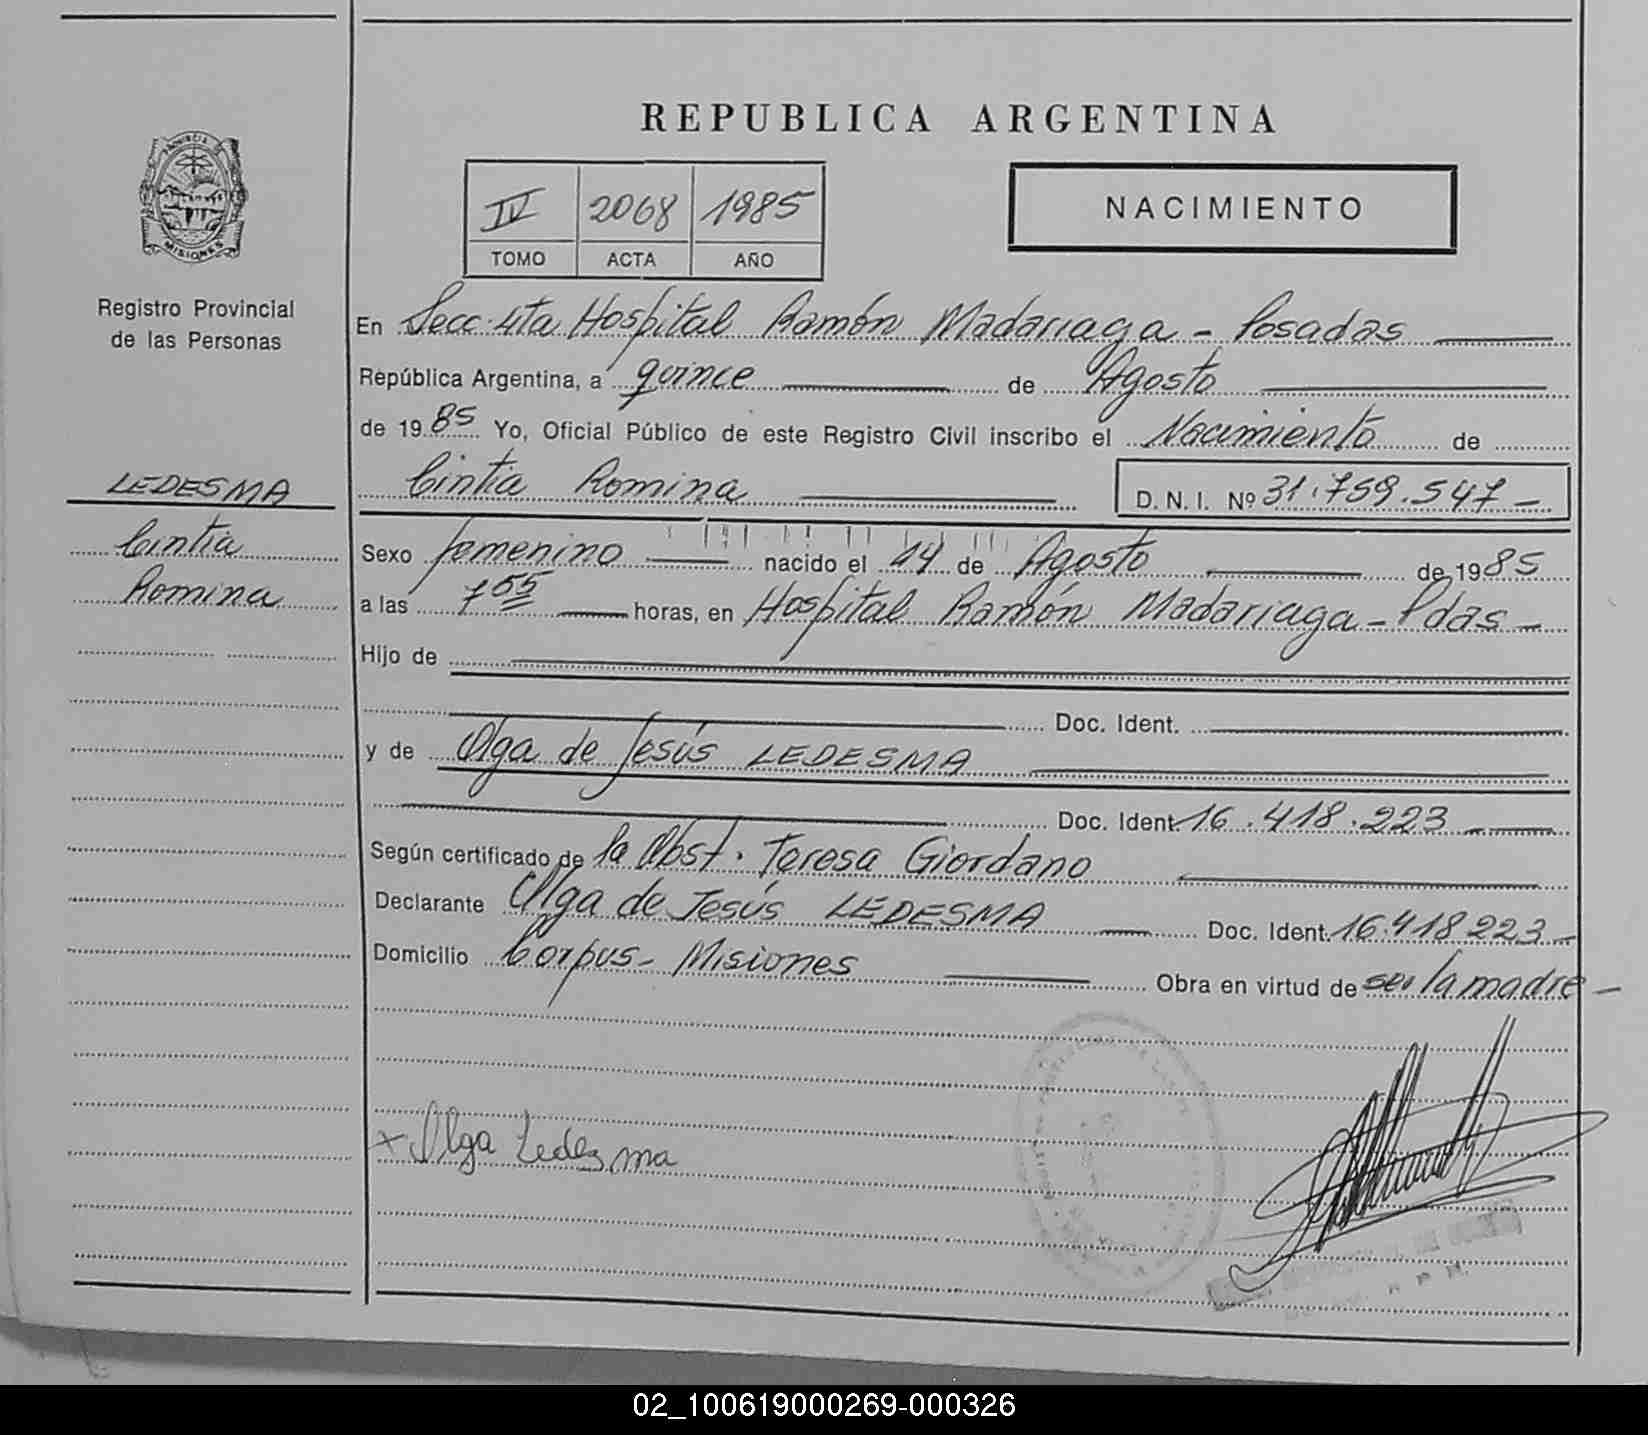 REPUBLICA ARGENTINA
PROVINCIA
MISIONES
IV 2068 1985
TOMO ACTA AÑO
NACIMIENTO
Registro Provincial
de las Personas
En Secc. 4ta Hospital Ramón Madariaga - Posadas
República Argentina, a quince de Agosto
de 1985 Yo, Oficial Público de este Registro Civil inscribo el Nacimiento de
LEDESMA
Cintia Romina D. N. I. Nº 31.759.547 -
Cintia
Romina
Sexo femenino nacido el 14 de Agosto de 1985
a las 7 55 horas, en Hospital Ramón Madariaga - Pdas -
Hijo de
Doc. Ident.
y de Olga de Jesús LEDESMA
Doc. Ident. 16.418.223
Según certificado de la Obst. Teresa Giordano
Declarante Olga de Jesús LEDESMA Doc. Ident. 16.418.223 -
Domicilio Corpus - Misiones Obra en virtud de ser la madre -
x Olga Ledesma
02_100619000269-000326